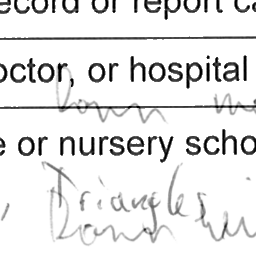 ecord or report ca
octor, or hospital
Dawn
e or nursery scho
Triangles
Dawn